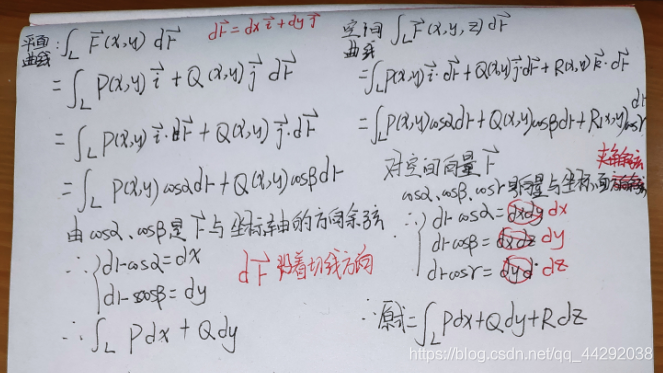 平面曲线: ∫_L F⃗(x,y) dr⃗
dr⃗ = dx i⃗ + dy j⃗
= ∫_L P(x,y) i⃗ + Q(x,y) j⃗ dr⃗
= ∫_L P(x,y) i⃗·dr⃗ + Q(x,y) j⃗·dr⃗
= ∫_L P(x,y) cosα dr + Q(x,y) cosβ dr
由 cosα、cosβ 是 r⃗ 与坐标轴的方向余弦
∴ { dr·cosα = dx
dr·cosβ = dy
dr⃗ 沿着切线方向
∴ ∫_L Pdx + Qdy
空间曲线 ∫_L F⃗(x,y,z) dr⃗
= ∫_L P(x,y) i⃗·dr⃗ + Q(x,y) j⃗ dr⃗ + R(x,y) k⃗·dr⃗
= ∫_L P(x,y) cosα dr + Q(x,y) cosβ dr + R(x,y) cosγ dr
对空间向量 r⃗
cosα、cosβ、cosγ 是向量与坐标
夹角余弦
∴ { dr cosα = dxdy dx
dr cosβ = dxdz dy
dr cosγ = dydz dz
∴ 原式 = ∫_L Pdx + Qdy + Rdz
https://blog.csdn.net/qq_44292038